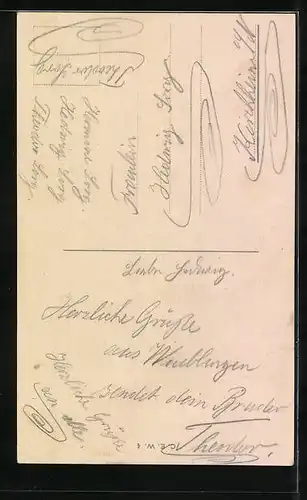 Theodor Sorg
Hermann Sorg.
Hedwig Sorg
Theodor Sorg.
Fräulein
Hedwig Sorg
Kirchheim u/
Liebe Hedwig.
Herzliche Grüße
aus Waiblingen
sendet dein Bruder
Theodor.
Herzliche Grüße
an alle.